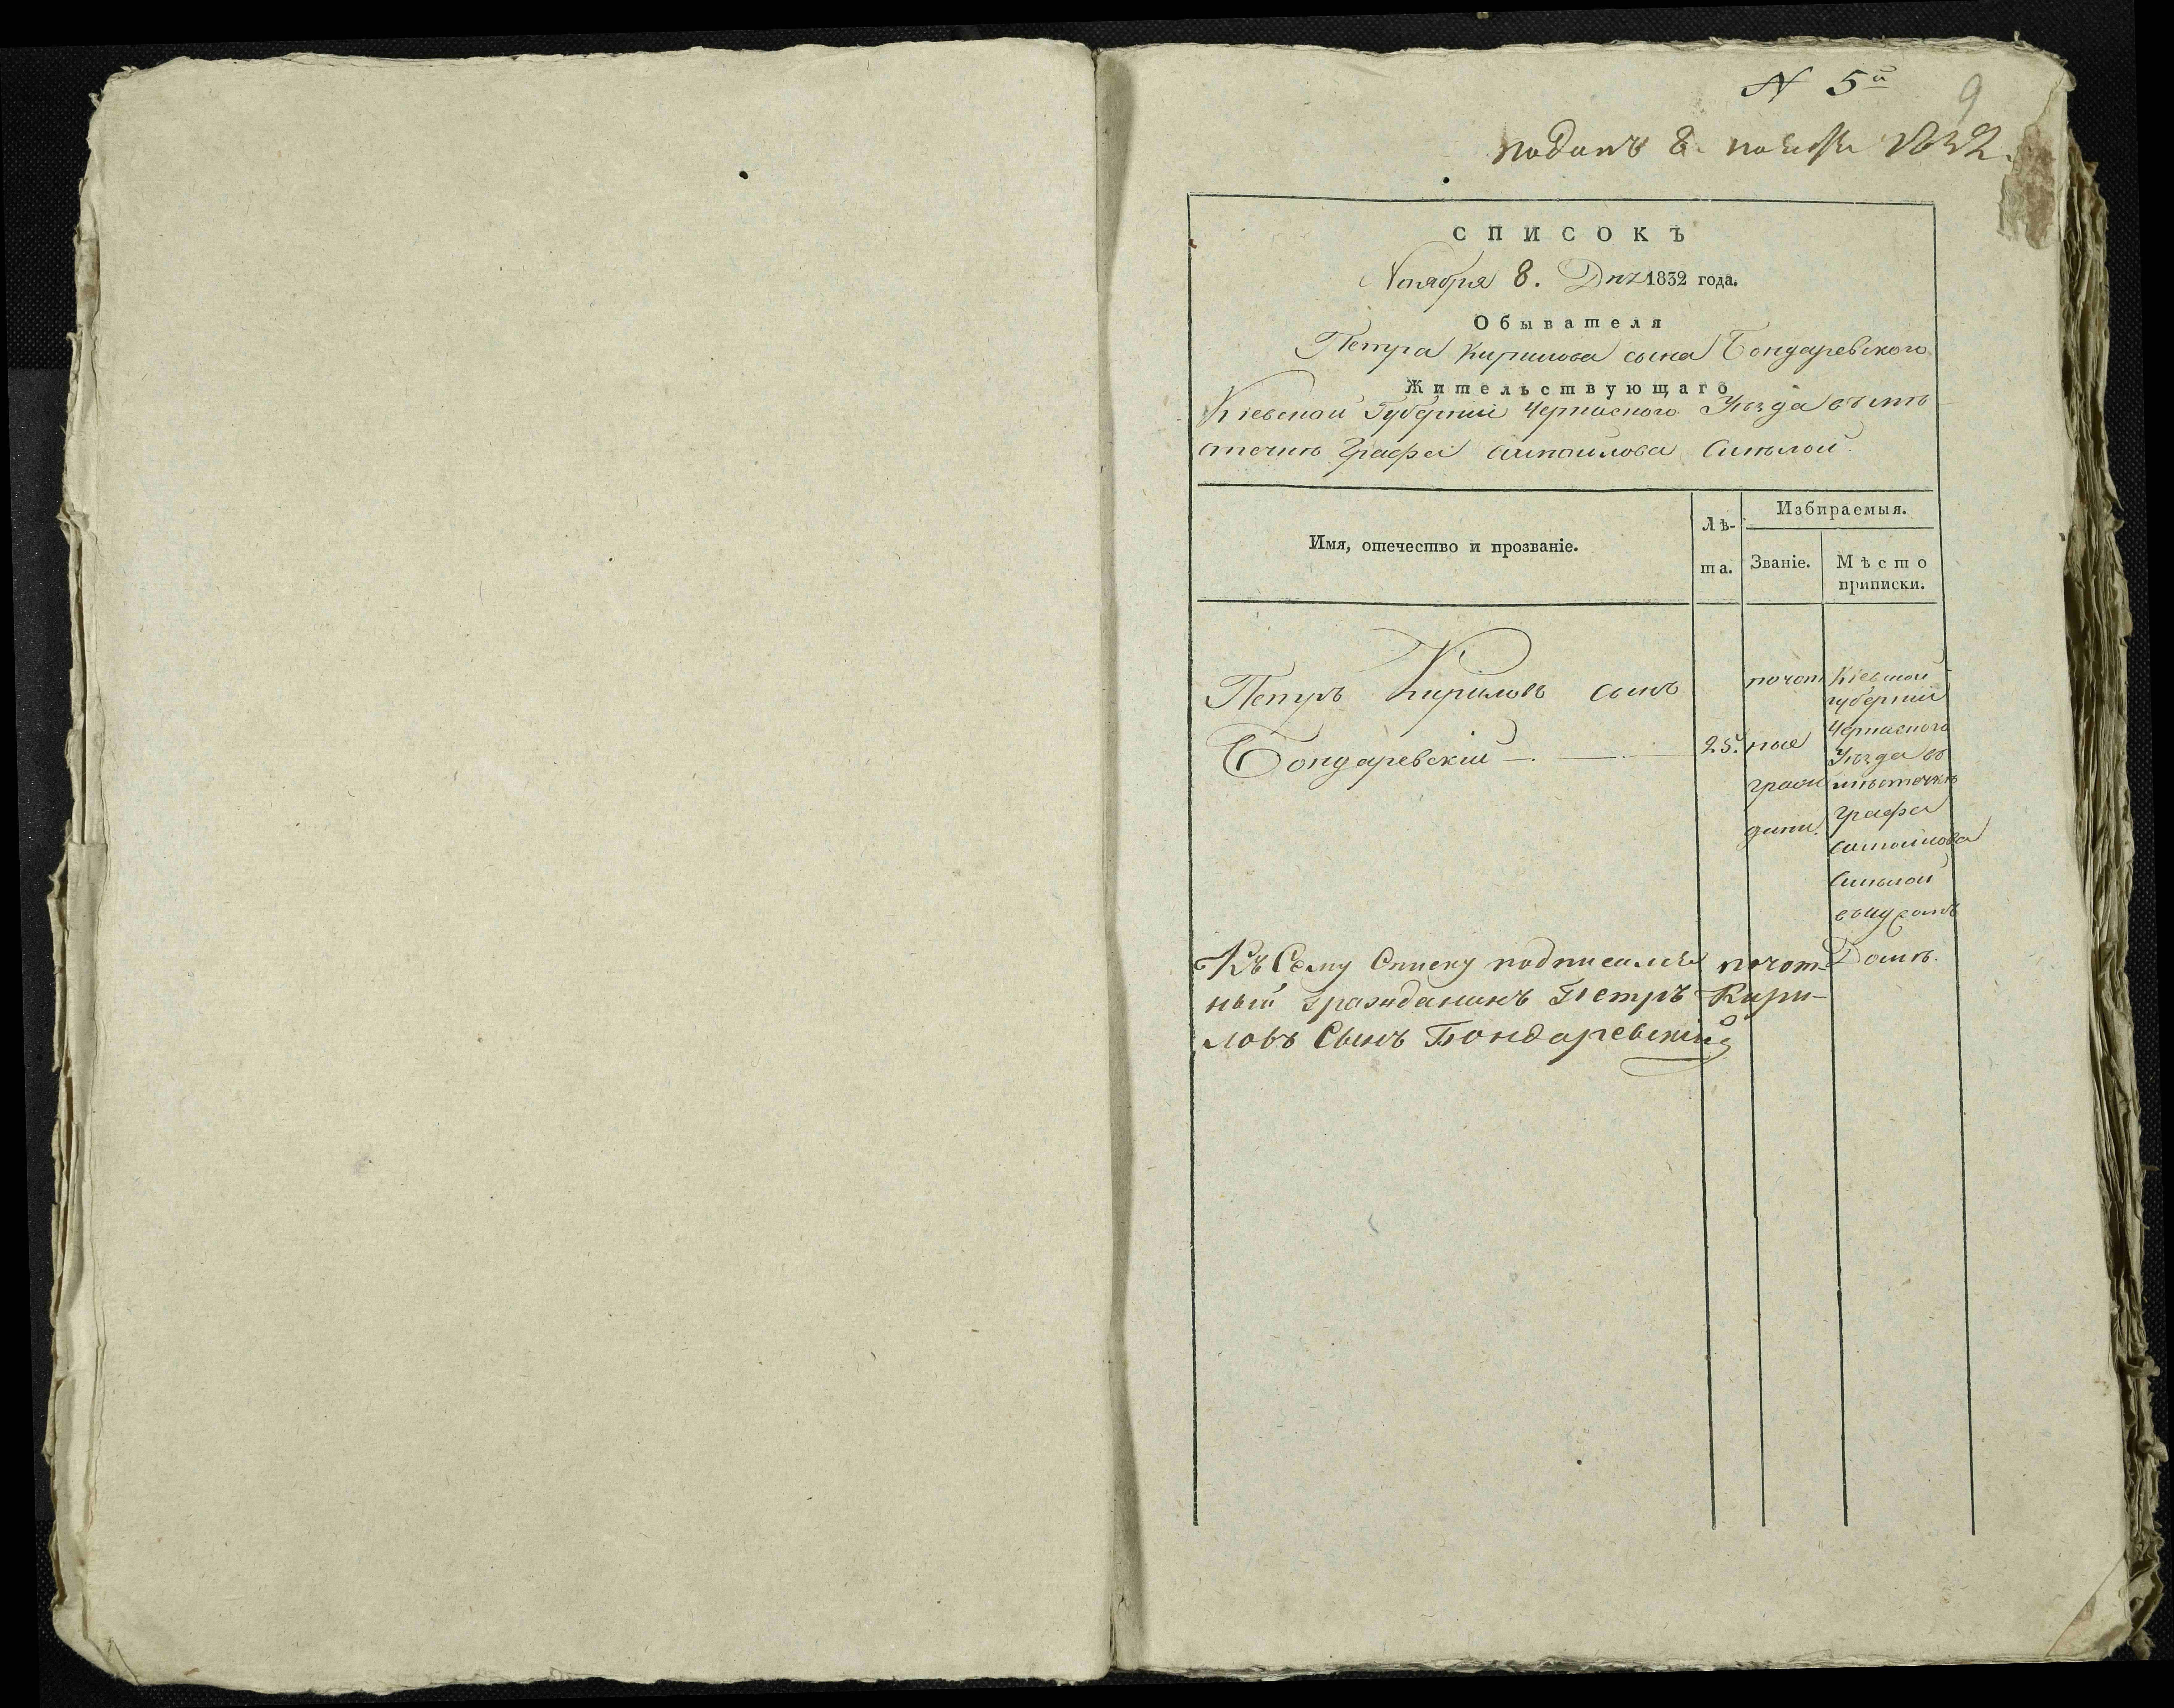 N 5й
9
поданъ 8. ноября 1832.
СПИСОКЪ
Ноября 8. Дня 1832 года.
Обывателя
Петра Кирилова сына Бондаревского
Жительствующаго
Кіевской Губерніи Черкаского Уѣзда въ мѣ
стечкѣ Графа Самойлова Смѣлой.
Имя, отечество и прозваніе.
Лѣ-
та.
Избираемыя.
Званіе.
Мѣсто
приписки.
Петръ Кириловъ сынъ
Бондаревскій
25.
почот
ное
граж
дани.
Кіевской
губерніи
Черкаского
Уѣзда въ
мѣстечкѣ
Графа
Самойлова
Смѣлой
Домѣ.
Къ Сему Списку подписался почот-
ный гражданинъ Петръ Кири-
ловъ Сынъ Бондаревскій